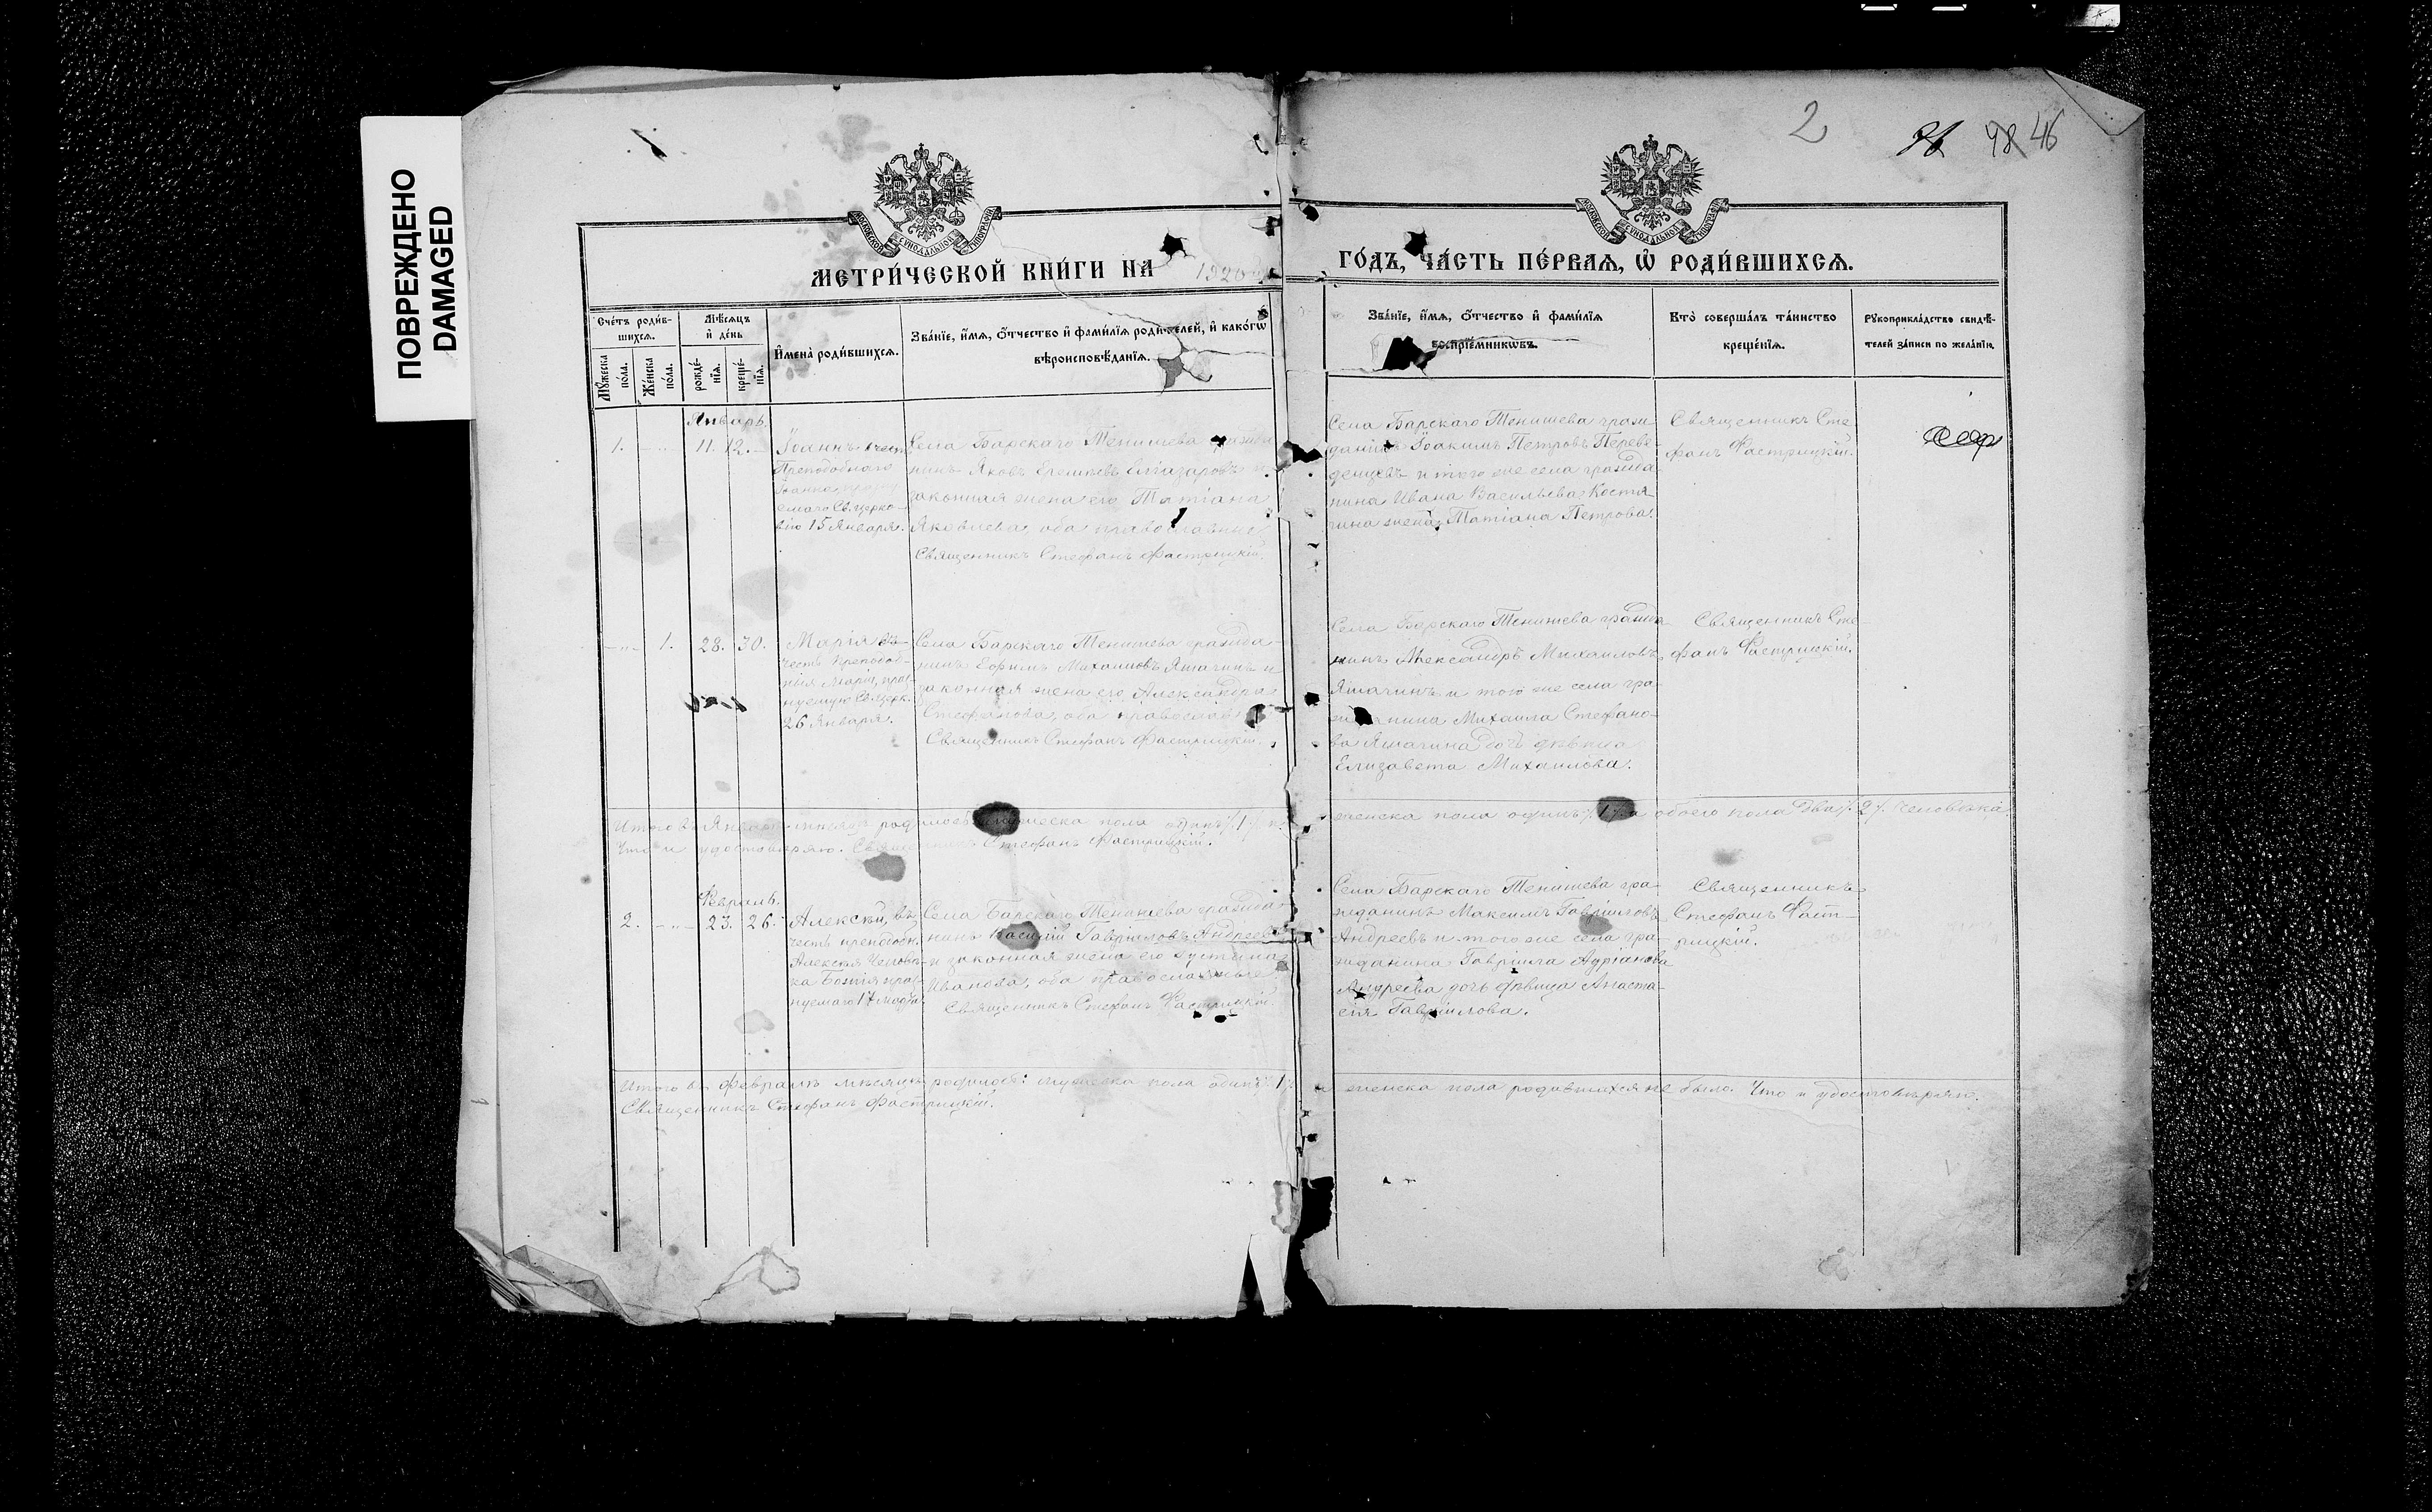 ПОВРЕЖДЕНО
DAMAGED
2
48 46
МОСКОВСКОЙ СѴНОДАЛЬНОЙ ТИПОГРАФІИ
МОСКОВСКОЙ СѴНОДАЛЬНОЙ ТИПОГРАФІИ
МЕТРИ́ЧЕСКОЙ КНИ́ГИ НА 1920 ГО́ДЪ, ЧА́СТЬ ПЕ́РВАЯ, Ѡ҆ РОДИ́ВШИХСЯ.
Сче́тъ роди́в-
шихся.
Мѣ́сяцъ
и҆ де́нь
Мꙋ́жеска
по́ла.
Же́нска
по́ла.
рожде́-
нїя.
креще́-
нїя.
И҆мена̀ роди́вшихся.
Зва́нїе, и҆́мя, ѻ҆́тчество и҆ фами́лїя роди́телей, и҆ како́гѡ
вѣроисповѣ́данїя.
Зва́нїе, и҆́мя, ѻ҆́тчество и҆ фами́лїя
воспрїе́мникѡвъ.
Кто̀ соверша́лъ та́инство
креще́нїя.
Рꙋкоприкла́дство свидѣ́-
телей за́писи по жела́нїю.
Январь.
1. 11. 12. Іоаннъ въ честь
Преподобнаго
Іоанна, празну
емаго Св. церко-
вію 15 Января.
Села Барскаго Тенишева гражда
нинъ Яковъ Елизаровъ и
законная жена его Татіана
Яковлева, оба православные
Священникъ Стефанъ Фастрицкій.
Села Барскаго Тенишева граж-
данинъ Іоакимъ Петровъ Переве-
денцевъ и того же села гражда
нина Ивана Васильева Костя
гина жена Татіана Петрова.
Священникъ Сте
фанъ Фастрицкій.
1. 28. 30. Марія въ
честь Преподоб-
ныя Маріи, праз
нуемую Св. церк.
26 Января.
Села Барскаго Тенишева гражда-
нинъ Ефимъ Михаиловъ Ямачинъ и
законная жена его Александра
Стефанова, оба православн
Священникъ Стефанъ Фастрицкій.
Села Барскаго Тенишева гражда
нинъ Александръ Михаиловъ
Ямачинъ и того же села гра-
жданина Михаила Стефано-
ва Ямачина дочь дѣвица
Елизавета Михаилова.
Священникъ Сте-
фанъ Фастрицкій.
Итого въ Январѣ мѣсяцѣ родилось: мужеска пола одинъ /.1/. и женска пола одинъ /.1/. а обоего пола два /.2/. человѣка,
Что и удостовѣряю. Священникъ Стефанъ Фастрицкій.
Февраль.
2. 23. 26. Алексѣй, въ
честь преподобн.
Алексѣя Человѣ-
ка Божія праз-
нуемаго 17 марта.
Села Барскаго Тенишева гражда-
нинъ Василій Гавріиловъ Андреевъ
и законная жена его Іустина
Иванова, оба православные
Священникъ Стефанъ Фастрицкій.
Села Барскаго Тенишева гра-
жданинъ Максимъ Гавріиловъ
Андреевъ и того же села гра-
жданина Гавріила Адріанова
Андреева дочь дѣвица Анаста-
сія Гавріилова.
Священникъ
Стефанъ Фаст-
рицкій.
Итого въ Февралѣ мѣсяцѣ родилось: мужеска пола одинъ /.1/. женска пола родившихся не было. Что и удостовѣряю.
Священникъ Стефанъ Фастрицкій.